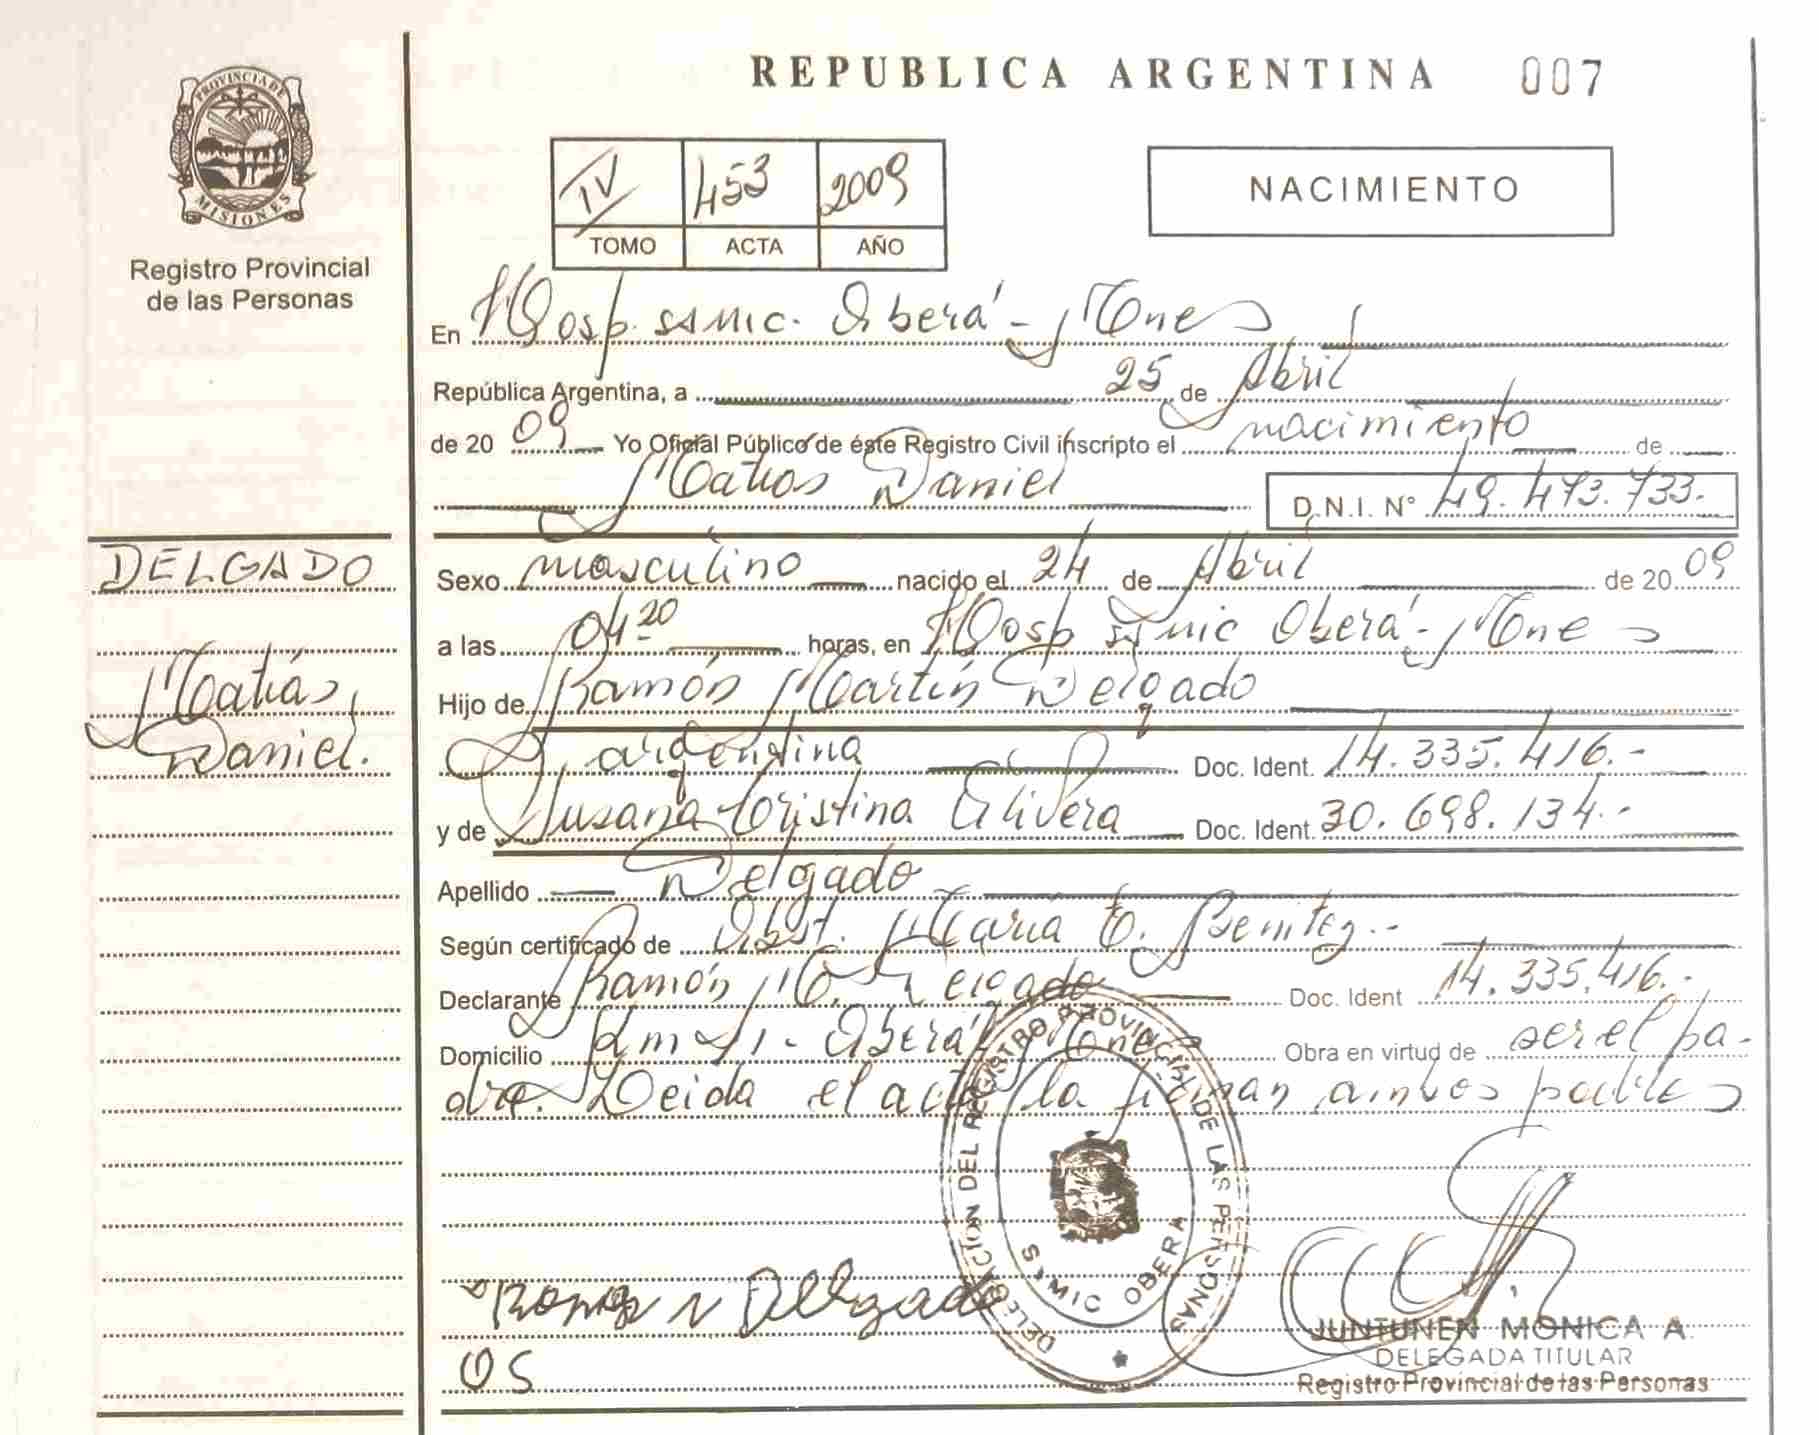 REPUBLICA ARGENTINA 007
PROVINCIA DE MISIONES
Registro Provincial
de las Personas
IV 453 2009
TOMO ACTA AÑO
NACIMIENTO
En Hosp. SAMIC. Oberá - Mnes
República Argentina, a 25 de Abril
de 20 09 Yo Oficial Público de éste Registro Civil inscripto el nacimiento de
Matías Daniel D.N.I. N° 49.473.733.-
DELGADO
Matías
Daniel.
Sexo masculino nacido el 24 de Abril de 20 09
a las 04 20 horas, en Hosp Samic Oberá - Mnes
Hijo de Ramón Martín Delgado
argentina Doc. Ident. 14.335.416.-
y de Susana Cristina Doc. Ident. 30.698.134.-
Apellido Delgado
Según certificado de Obst. María E. Benitez.-
Declarante Ramón M. Delgado Doc. Ident 14.335.416.-
Domicilio Km Oberá Mnes Obra en virtud de ser el pa-
dre. Leida el acta la firman ambos padres
Delgado
OS
DELEGACION DEL REGISTRO PROVINCIAL DE LAS PERSONAS
SAMIC OBERA
JUNTUNEN MONICA A.
DELEGADA TITULAR
Registro Provincial de las Personas